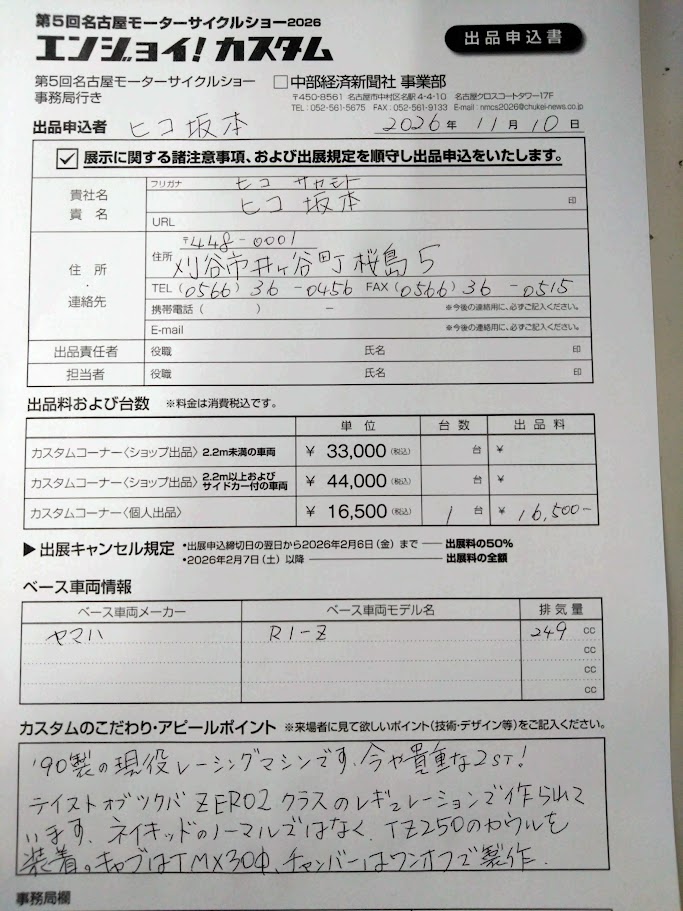 第5回名古屋モーターサイクルショー2026
エンジョイ!カスタム
出品申込書
第5回名古屋モーターサイクルショー
事務局行き
□中部経済新聞社 事業部
〒450-8561 名古屋市中村区名駅4-4-10 名古屋クロスコートタワー17F
TEL:052-561-5675 FAX:052-561-9133 E-mail:nmcs2026@chukei-news.co.jp
出品申込者 ヒコ坂本 2026年 11月 10日
☑ 展示に関する諸注意事項、および出展規定を順守し出品申込をいたします。
貴社名
貴名
フリガナ ヒコ サカモト
ヒコ 坂本 印
URL
住所
・
連絡先
〒448-0001
住所 刈谷市井ヶ谷町桜島5
TEL (0566) 36 -0456 FAX (0566) 36 -0515
携帯電話( ) - ※今後の連絡用に、必ずご記入ください。
E-mail ※今後の連絡用に、必ずご記入ください。
出品責任者 役職 氏名 印
担当者 役職 氏名 印
出品料および台数 ※料金は消費税込です。
単位 台数 出品料
カスタムコーナー〈ショップ出品〉2.2m未満の車両 ¥ 33,000(税込) 台 ¥
カスタムコーナー〈ショップ出品〉2.2m以上およびサイドカー付の車両 ¥ 44,000(税込) 台 ¥
カスタムコーナー〈個人出品〉 ¥ 16,500(税込) 1 台 ¥ 16,500-
▶出展キャンセル規定 •出展申込締切日の翌日から2026年2月6日(金)まで ― 出展料の50%
•2026年2月7日(土)以降 ― 出展料の全額
ベース車両情報
ベース車両メーカー ベース車両モデル名 排気量
ヤマハ R1-Z 249 cc
cc
cc
cc
カスタムのこだわり・アピールポイント ※来場者に見て欲しいポイント(技術・デザイン等)をご記入ください。
'90製の現役レーシングマシンです、今や貴重な2ST!
テイストオブツクバ ZERO2クラスのレギュレーションで作られて
います、ネイキッドのノーマルではなく、TZ250のカウルを
装着。キャブはTMX30Φ、チャンバーはワンオフで製作.
事務局欄